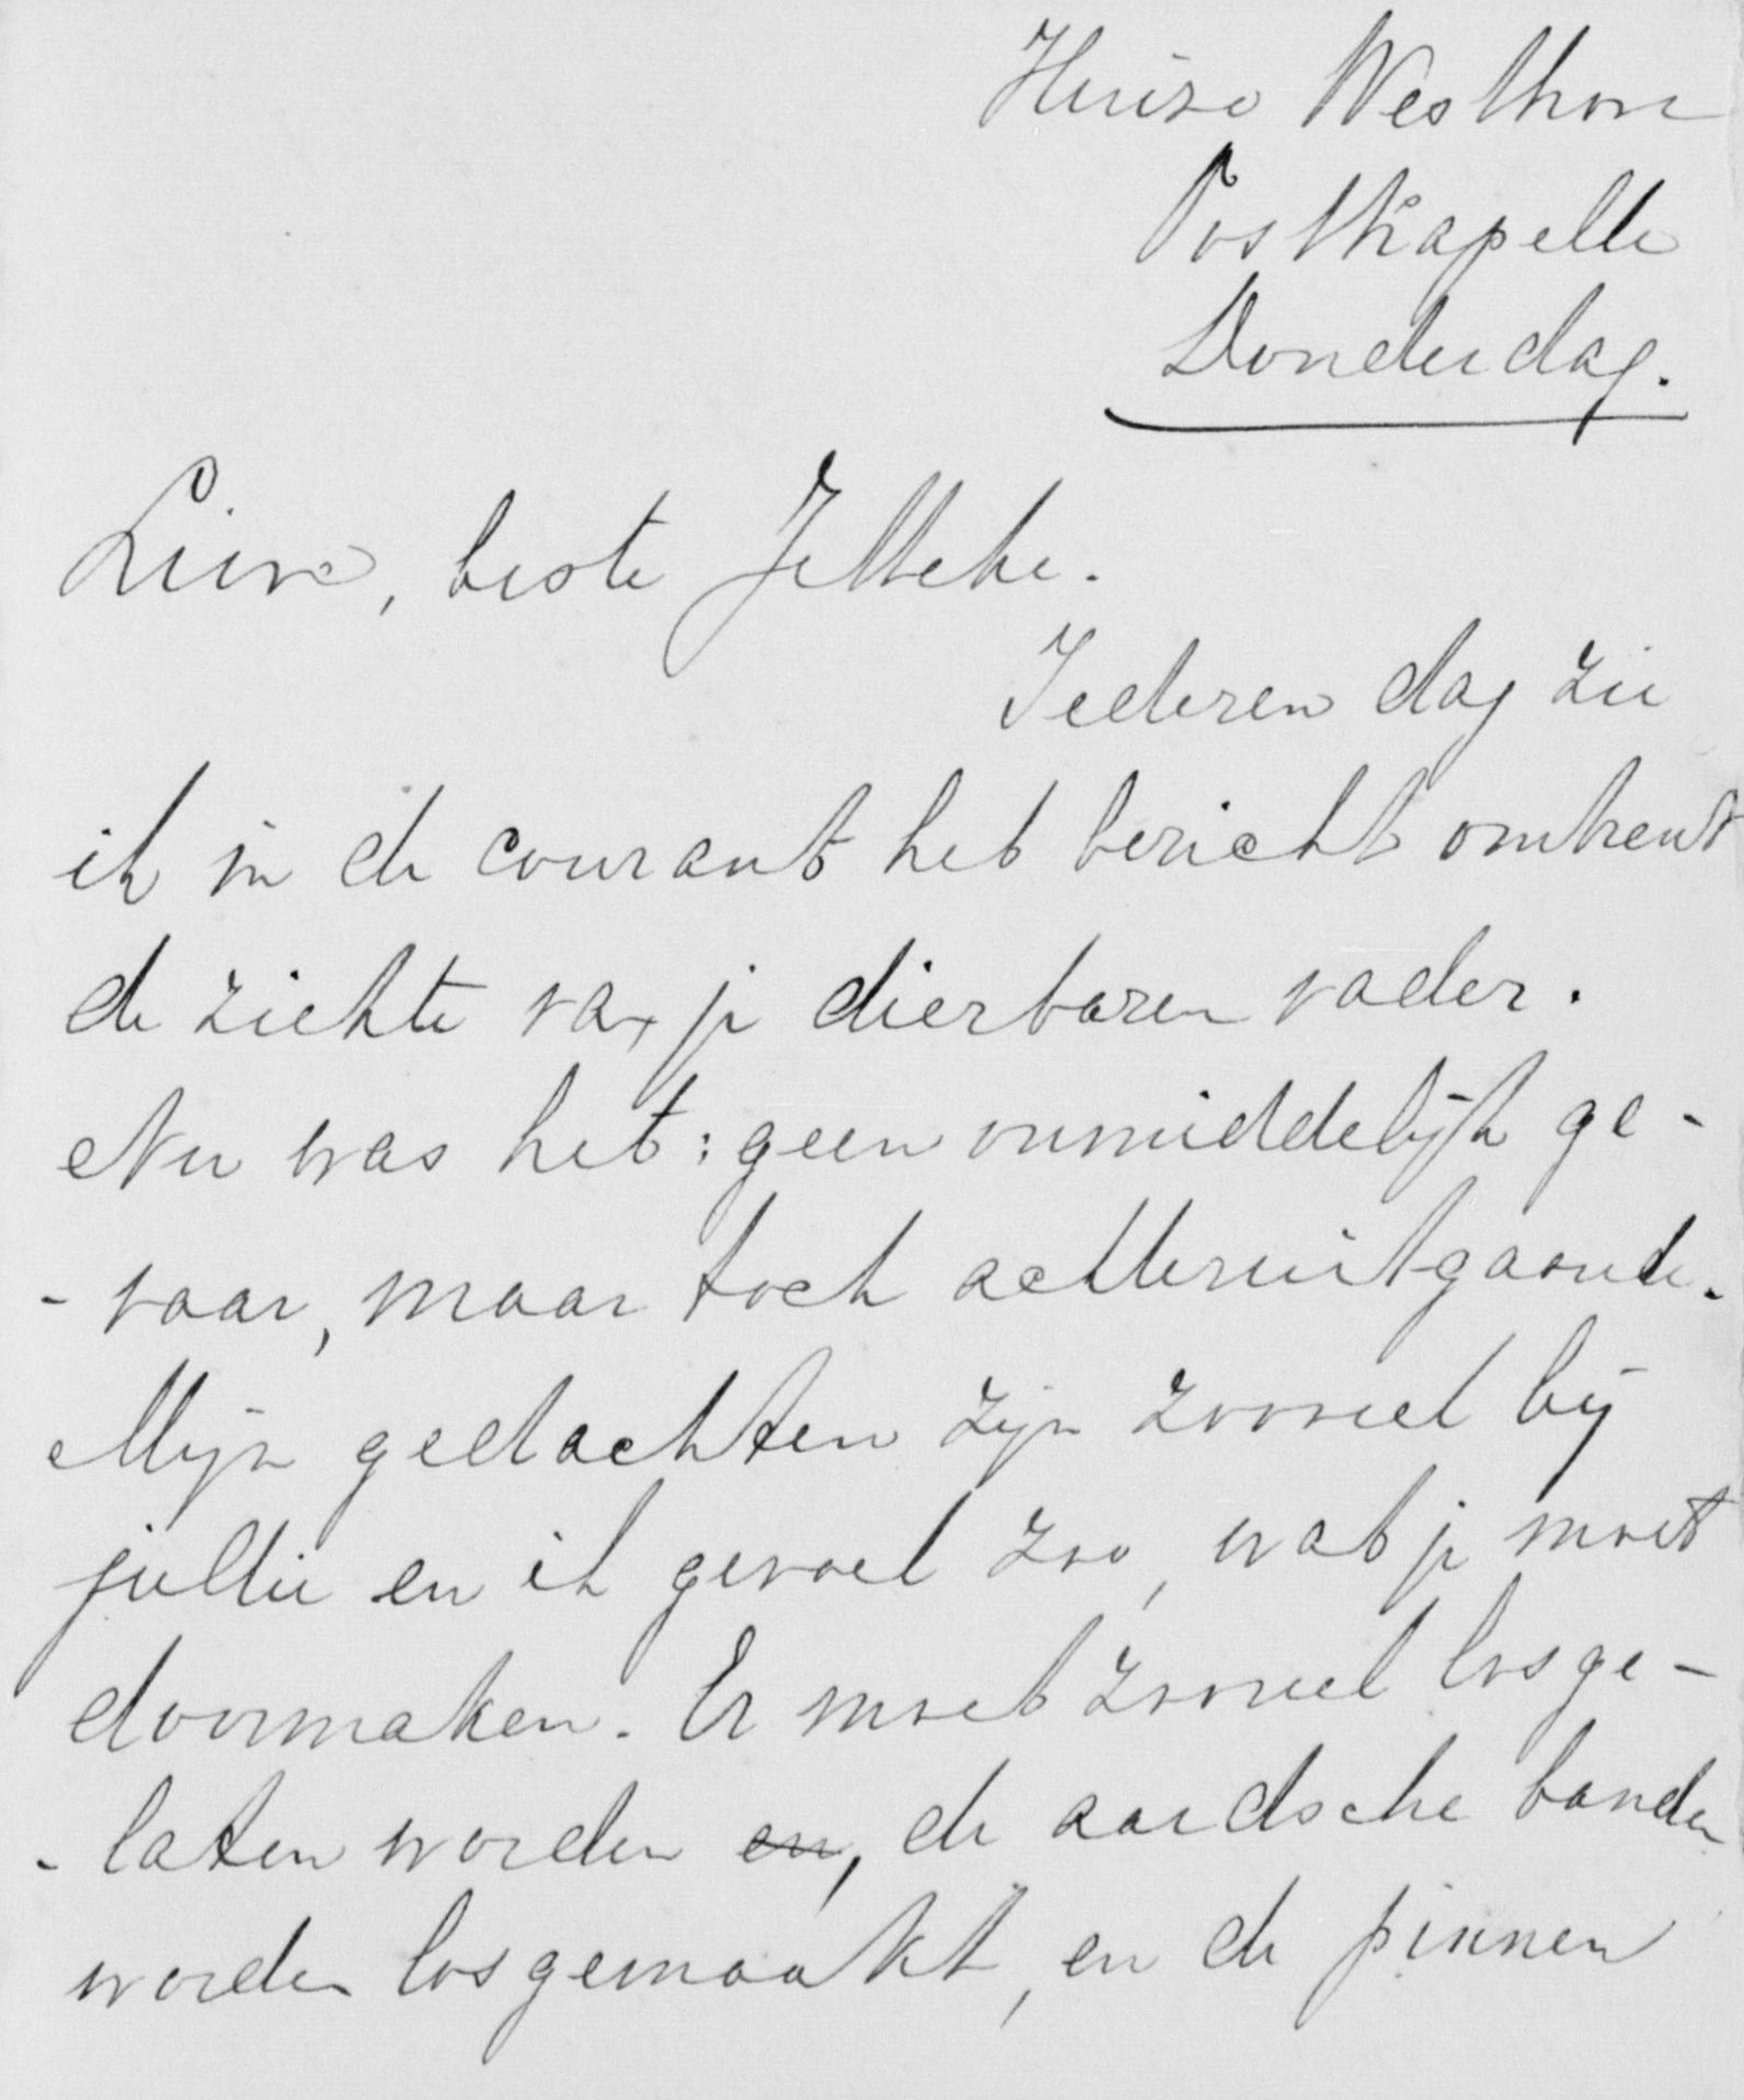 Huize Westhove
Oostkapelle
Donderdag.
Lieve, beste Jelleke.
Iederen dag zie
ik in de courant het bericht omtrent
de ziekte van je dierbaren vader.
Nu was het: geen onmiddelijk ge-
- vaar, maar toch achteruitgaande.
Mijn gedachten zijn zooveel bij
jullie en ik gevoel zoo, wat je moet
doormaken. Er moet zooveel losge-
- laten worden en, de aardsche banden
worden losgemaakt, en de pinnen